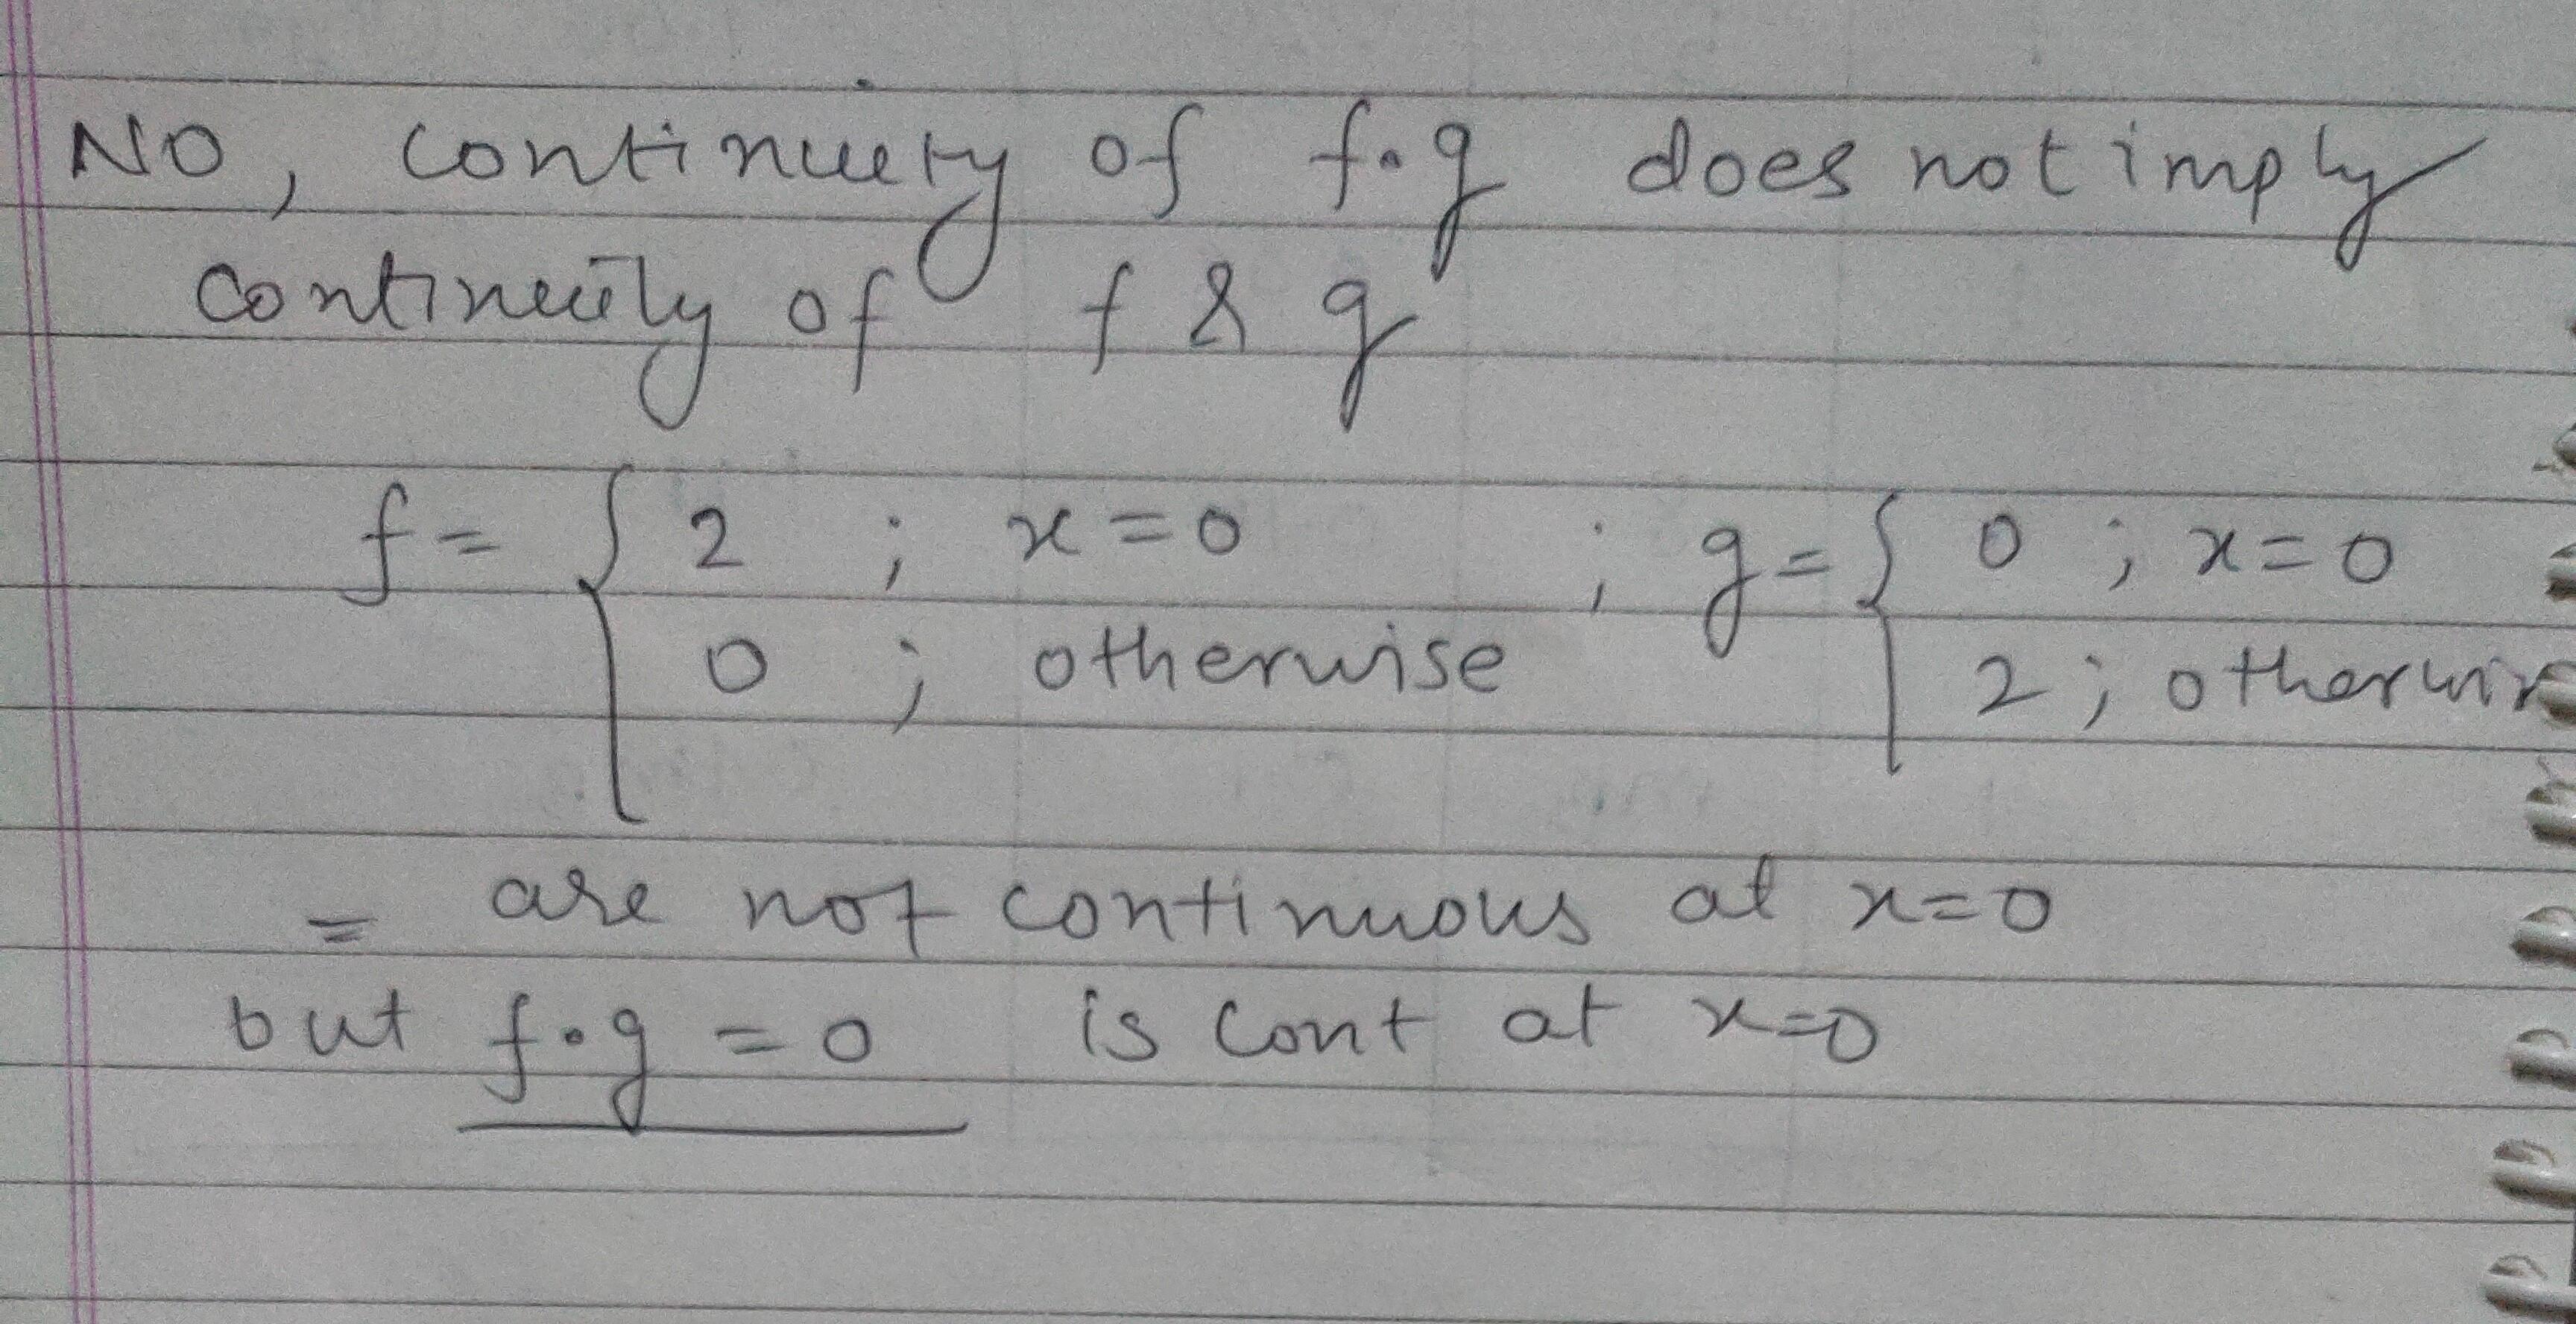 NO, continuity of f.g does not imply
continuity of f & g
f = { 2 ; x = 0 ; g = { 0 ; x = 0
0 ; otherwise 2 ; otherwis
= are not continuous at x = 0
but f.g = 0 is cont at x = 0